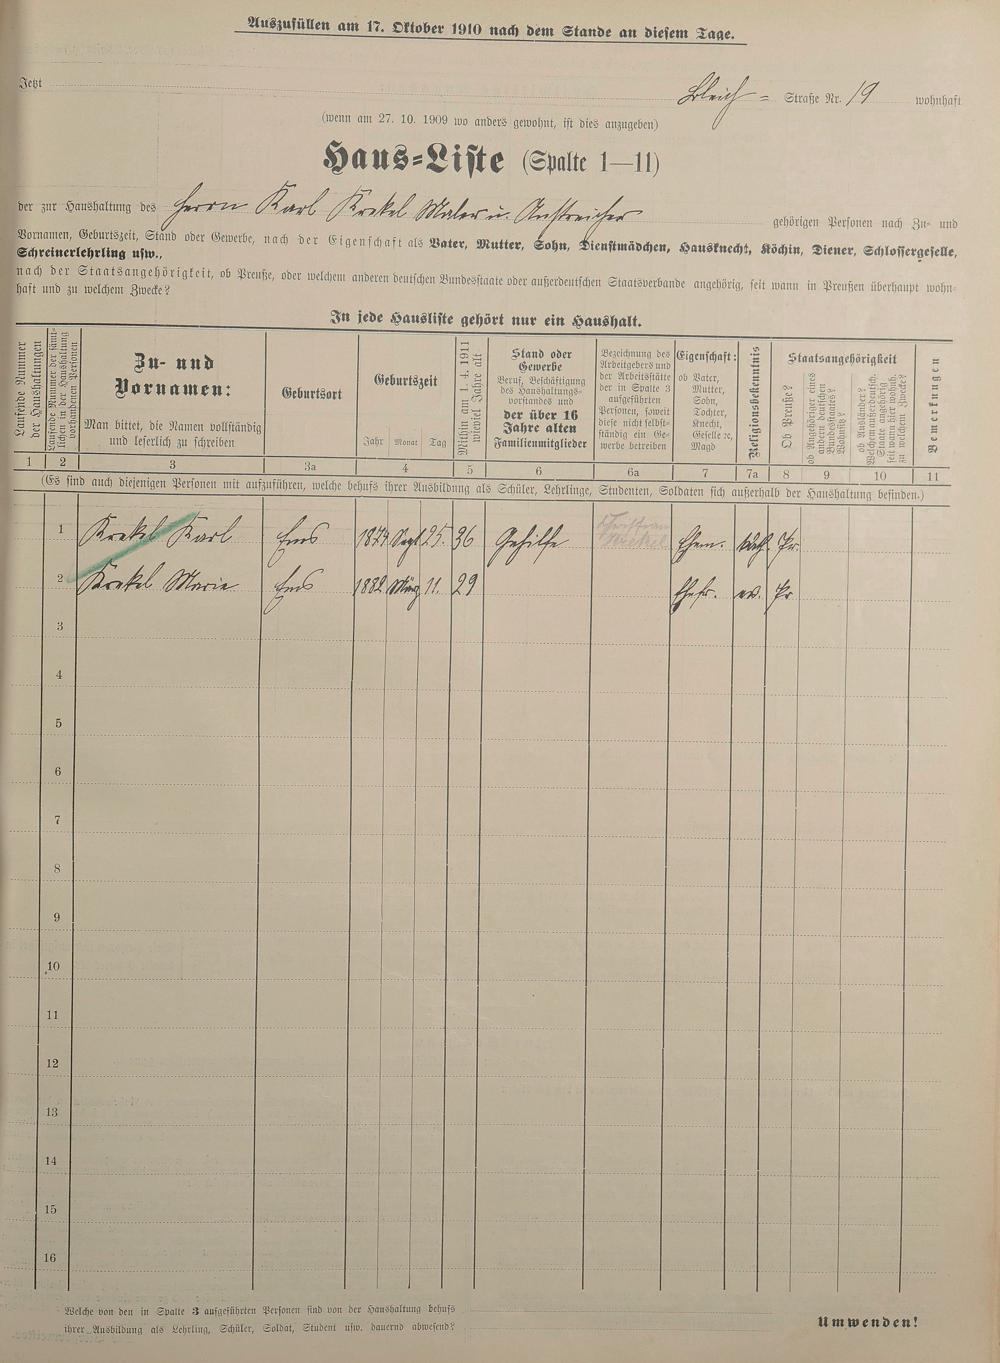 Auszufüllen am 17. Oktober 1910 nach dem Stande an diesem Tage.
Jetzt Bleich = Straße Nr. 19 wohnhaft
(wenn am 27. 10. 1909 wo anders gewohnt, ist dies anzugeben)
Haus-Liste (Spalte 1—11)
der zur Haushaltung des Herrn Karl Krekel Maler u. Anstreicher gehörigen Personen nach Zu- und
Vornamen, Geburtszeit, Stand oder Gewerbe, nach der Eigenschaft als Vater, Mutter, Sohn, Dienstmädchen, Hausknecht, Köchin, Diener, Schlossergeselle,
Schreinerlehrling usw.,
nach der Staatsangehörigkeit, ob Preuße, oder welchem anderen deutschen Bundesstaate oder außerdeutschen Staatsverbande angehörig, seit wann in Preußen überhaupt wohn-
haft und zu welchem Zwecke?
In jede Hausliste gehört nur ein Haushalt.
Laufende Nummer
der Haushaltungen
Laufende Nummer der sämt-
lichen in der Haushaltung
vorhandenen Personen
Zu- und
Vornamen:
Man bittet, die Namen vollständig
und leserlich zu schreiben
Geburtsort
Geburtszeit
Jahr Monat Tag
Mithin am 1. 4. 1911
wieviel Jahre alt
Stand oder
Gewerbe
Beruf, Beschäftigung
des Haushaltungs-
vorstandes und
der über 16
Jahre alten
Familienmitglieder
Bezeichnung des
Arbeitgebers und
der Arbeitsstätte
der in Spalte 3
aufgeführten
Personen, soweit
diese nicht selbst-
ständig ein Ge-
werbe betreiben
Eigenschaft:
ob Vater,
Mutter,
Sohn,
Tochter,
Knecht,
Geselle ꝛc,
Magd
Religionsbekenntnis
Staatsangehörigkeit
Ob Preuße?
ob Angehöriger eines
andern deutschen
Bundesstaates?
Wohnsitz?
ob Ausländer?
Welchem außerdeutsch.
Staate angehörig
seit wann hier wohnh.
zu welchem Zwecke?
Bemerkungen
1 2 3 3a 4 5 6 6a 7 7a 8 9 10 11
(Es sind auch diejenigen Personen mit aufzuführen, welche behufs ihrer Ausbildung als Schüler, Lehrlinge, Studenten, Soldaten sich außerhalb der Haushaltung befinden.)
1 Krekel Karl Ems 1874 Sept 25. 36 Gehilfe Ehem. kath. Pr.
2 Krekel Marie Ems 1882 März 11. 29 Ehefr. ev. Pr
3
4
5
6
7
8
9
10
11
12
13
14
15
16
Welche von den in Spalte 3 aufgeführten Personen sind von der Haushaltung behufs
ihrer Ausbildung als Lehrling, Schüler, Soldat, Student usw. dauernd abwesend?
Umwenden!